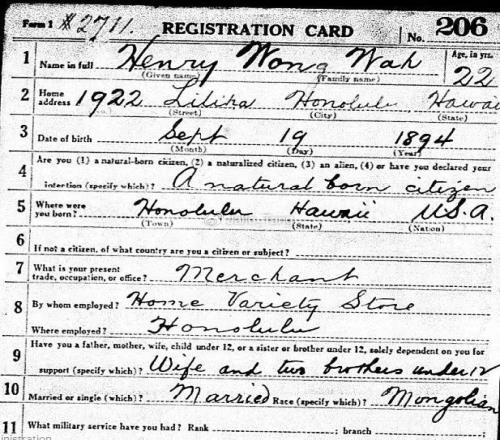 Form 1 # 2711. REGISTRATION CARD No. 206
1 Name in full Henry Wong Wah Age, in yrs.
(Given name) (Family name) 22
2 Home address 1922 Liliha Honolulu Hawaii
(Street) (City) (State)
3 Date of birth Sept 19 1894
(Month) (Day) (Year)
4 Are you (1) a natural-born citizen, (2) a naturalized citizen, (3) an alien, (4) or have you declared your
intention (specify which)? A natural born citizen
5 Where were you born? Honolulu Hawaii U.S.A.
(Town) (State) (Nation)
6 If not a citizen, of what country are you a citizen or subject?
7 What is your present trade, occupation, or office? Merchant
8 By whom employed? Home Variety Store
Where employed? Honolulu
9 Have you a father, mother, wife, child under 12, or a sister or brother under 12, solely dependent on you for
support (specify which)? Wife and two brothers under 12
10 Married or single (which)? Married Race (specify which)? Mongolian
11 What military service have you had? Rank ; branch